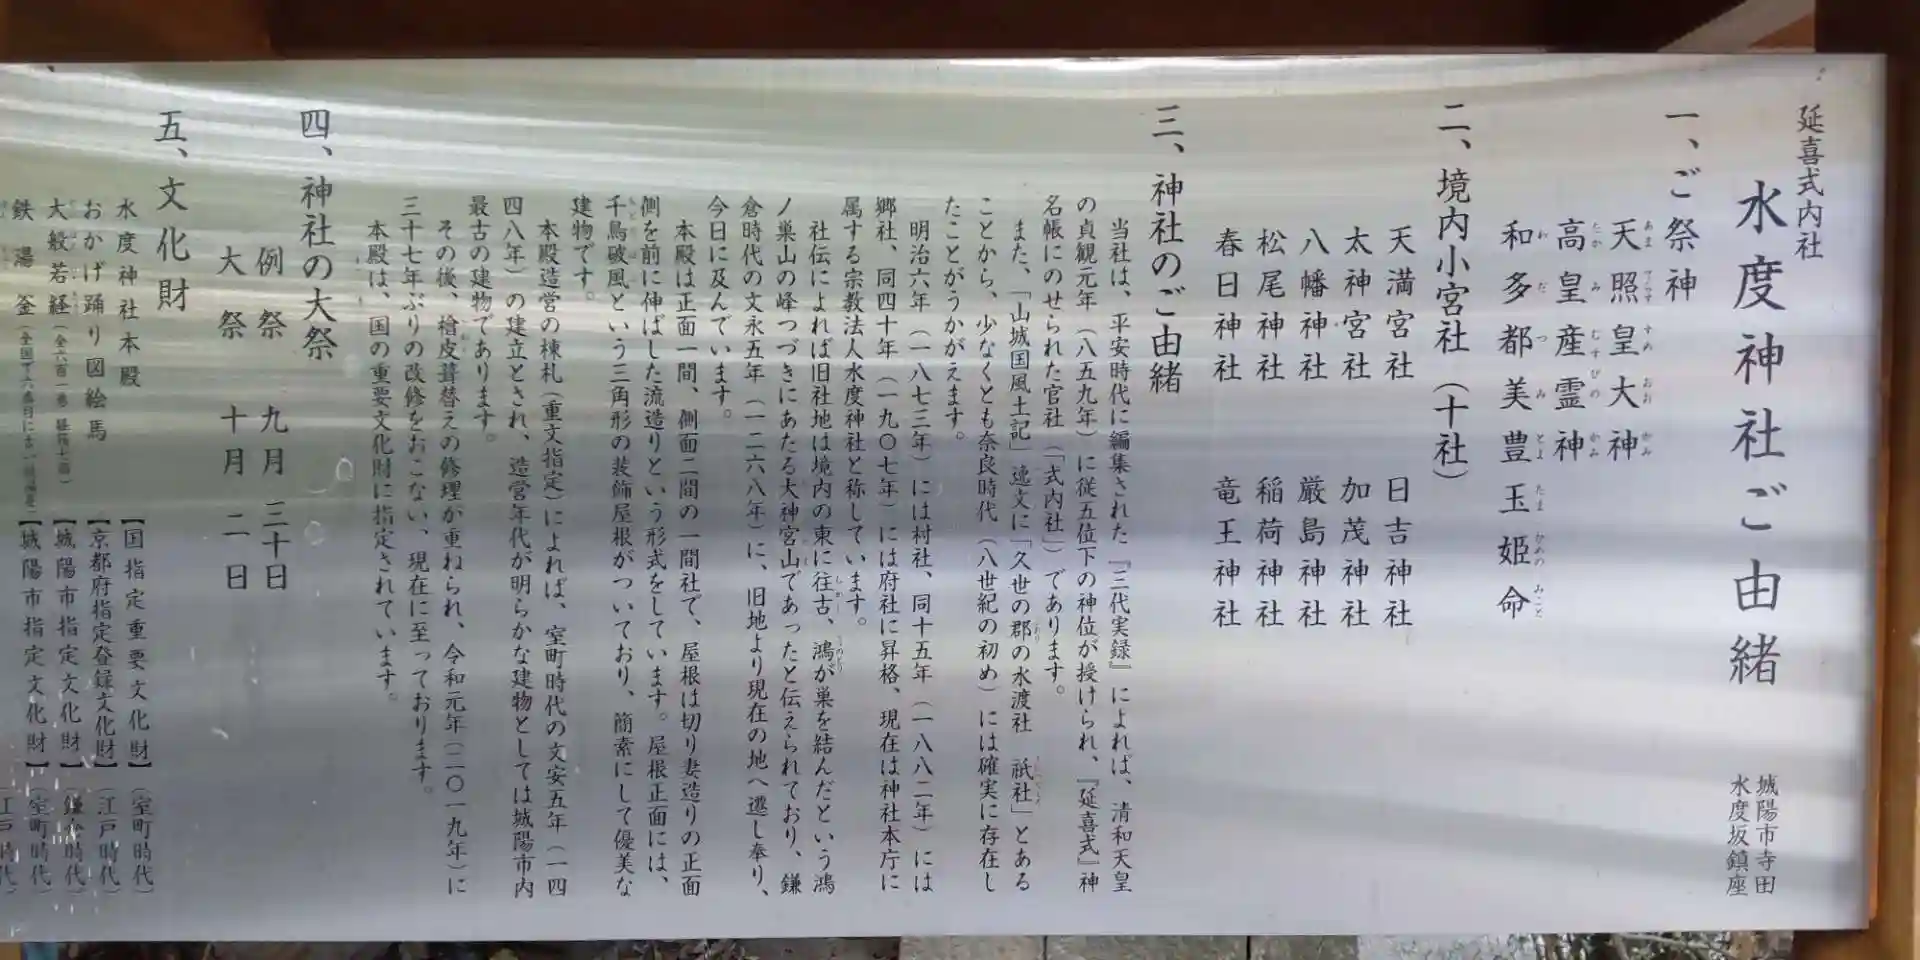 延喜式内社
水度神社ご由緒
城陽市寺田
水度坂鎮座
一、ご祭神
天照皇大神
高皇産霊神
和多都美豊玉姫命
二、境内小宮社（十社）
天満宮社 日吉神社
太神宮社 加茂神社
八幡神社 厳島神社
松尾神社 稲荷神社
春日神社 竜王神社
三、神社のご由緒
当社は、平安時代に編集された『三代実録』によれば、清和天皇
の貞観元年（八五九年）に従五位下の神位が授けられ、『延喜式』神
名帳にのせられた官社（「式内社」）であります。
また、「山城国風土記」逸文に「久世の郡の水渡社 祇社」とある
ことから、少なくとも奈良時代（八世紀の初め）には確実に存在し
たことがうかがえます。
明治六年（一八七三年）には村社、同十五年（一八八二年）には
郷社、同四十年（一九〇七年）には府社に昇格、現在は神社本庁に
属する宗教法人水度神社と称しています。
社伝によれば旧社地は境内の東に往古、鴻が巣を結んだという鴻
ノ巣山の峰つづきにあたる大神宮山であったと伝えられており、鎌
倉時代の文永五年（一二六八年）に、旧地より現在の地へ遷し奉り、
今日に及んでいます。
本殿は正面一間、側面二間の一間社で、屋根は切り妻造りの正面
側を前に伸ばした流造りという形式をしています。屋根正面には、
千鳥破風という三角形の装飾屋根がついており、簡素にして優美な
建物です。
本殿造営の棟札（重文指定）によれば、室町時代の文安五年（一四
四八年）の建立とされ、造営年代が明らかな建物としては城陽市内
最古の建物であります。
その後、檜皮葺替えの修理が重ねられ、今和元年（二〇一九年）に
三十七年ぶりの改修をおこない、現在に至っております。
本殿は、国の重要文化財に指定されています。
四、神社の大祭
例祭 九月 三十日
大祭 十月 二日
五、文化財
水度神社本殿 【国指定重要文化財】（室町時代）
おかげ踊り図絵馬 【京都府指定登録文化財】（江戸時代）
大般若経（全六百一巻 経箱七箱） 【城陽市指定文化財】（鎌倉時代）
鉄湯釜 【城陽市指定文化財】（室町時代）
（江戸時代）